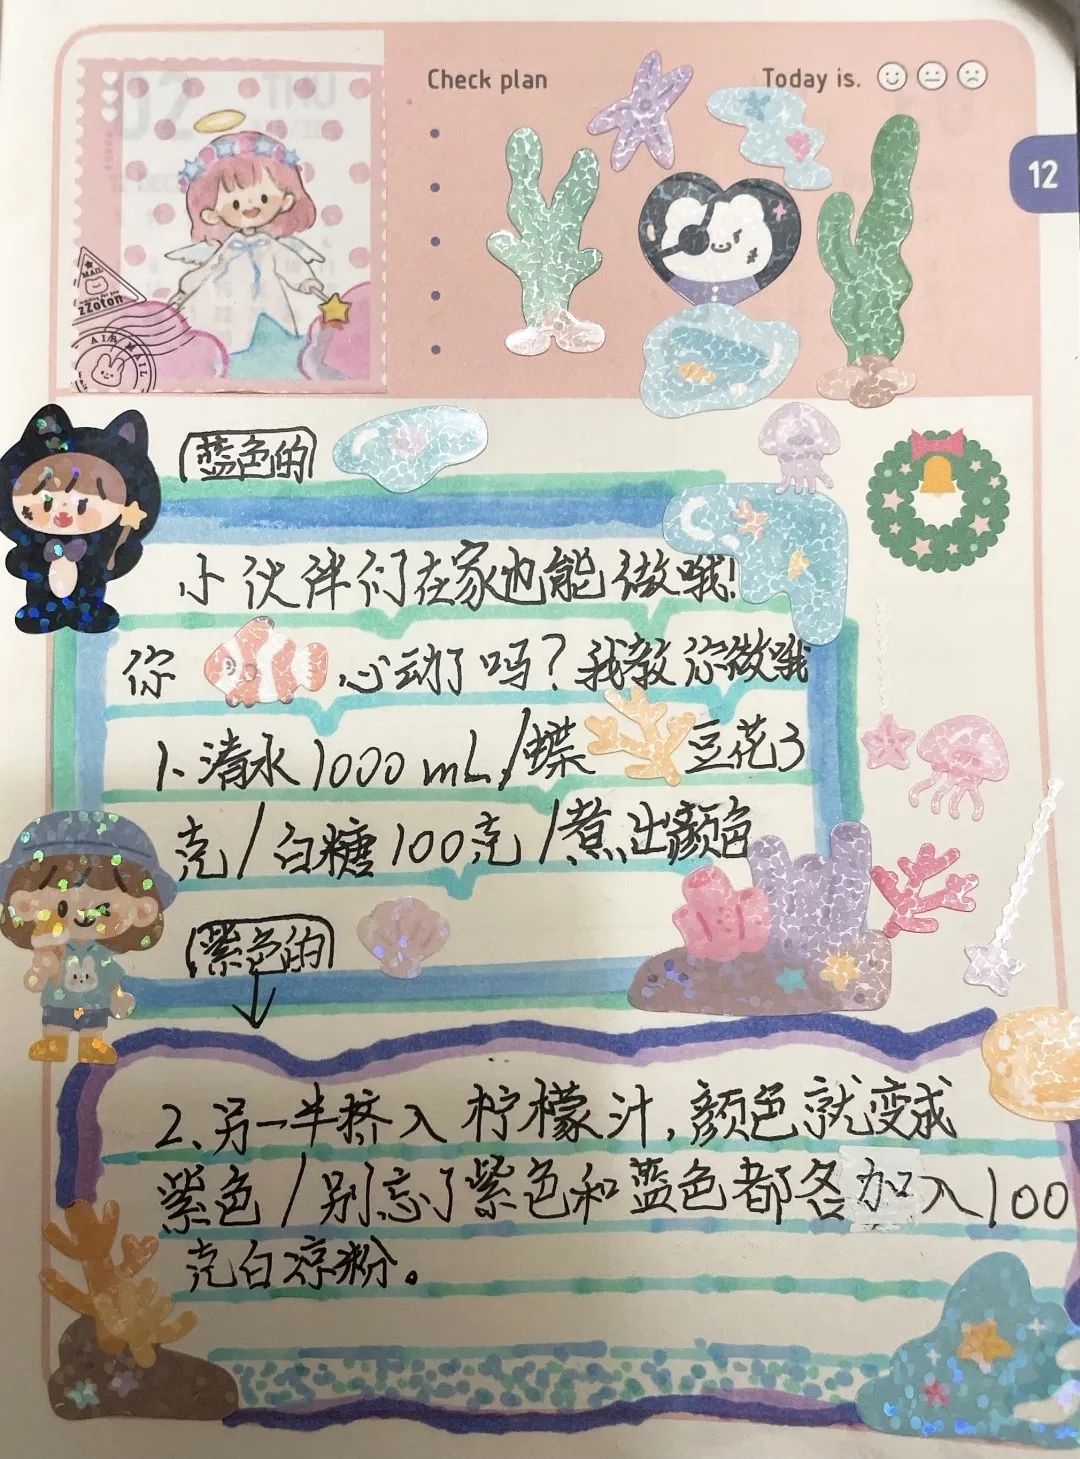 Check plan
Today is.
12
MAIL
zZoton
AIR MAIL
蓝色的
小伙伴们在家也能做哦!
你心动了吗?我教你做哦
1、清水1000mL/蝶豆花3
克/白糖100克/煮出颜色
紫色的
2、另一半挤入柠檬汁,颜色就变成
紫色/别忘了紫色和蓝色都各加入100
克白凉粉。